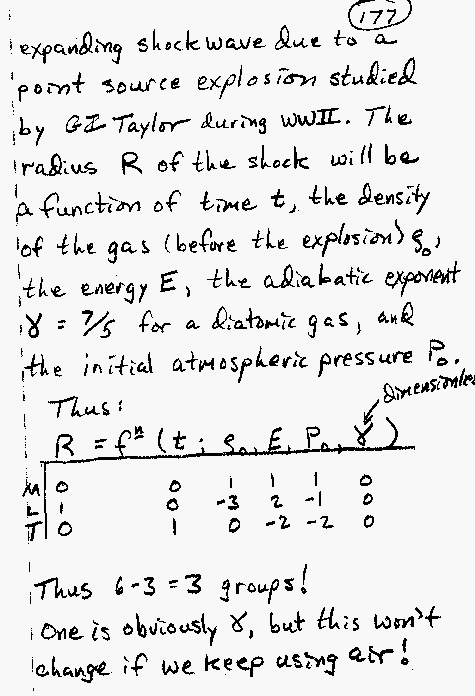 177
expanding shock wave due to a
point source explosion studied
by GI Taylor during WWII. The
radius R of the shock will be
a function of time t, the density
of the gas (before the explosion) ρ₀,
the energy E, the adiabatic exponent
γ = 7/5 for a diatomic gas, and
the initial atmospheric pressure P₀.
Thus: dimensionless
R = fⁿ (t; ρ₀, E, P₀, γ)
M 0 0 1 1 1 0
L 1 0 -3 2 -1 0
T 0 1 0 -2 -2 0
Thus 6-3 = 3 groups!
One is obviously γ, but this won't
change if we keep using air!